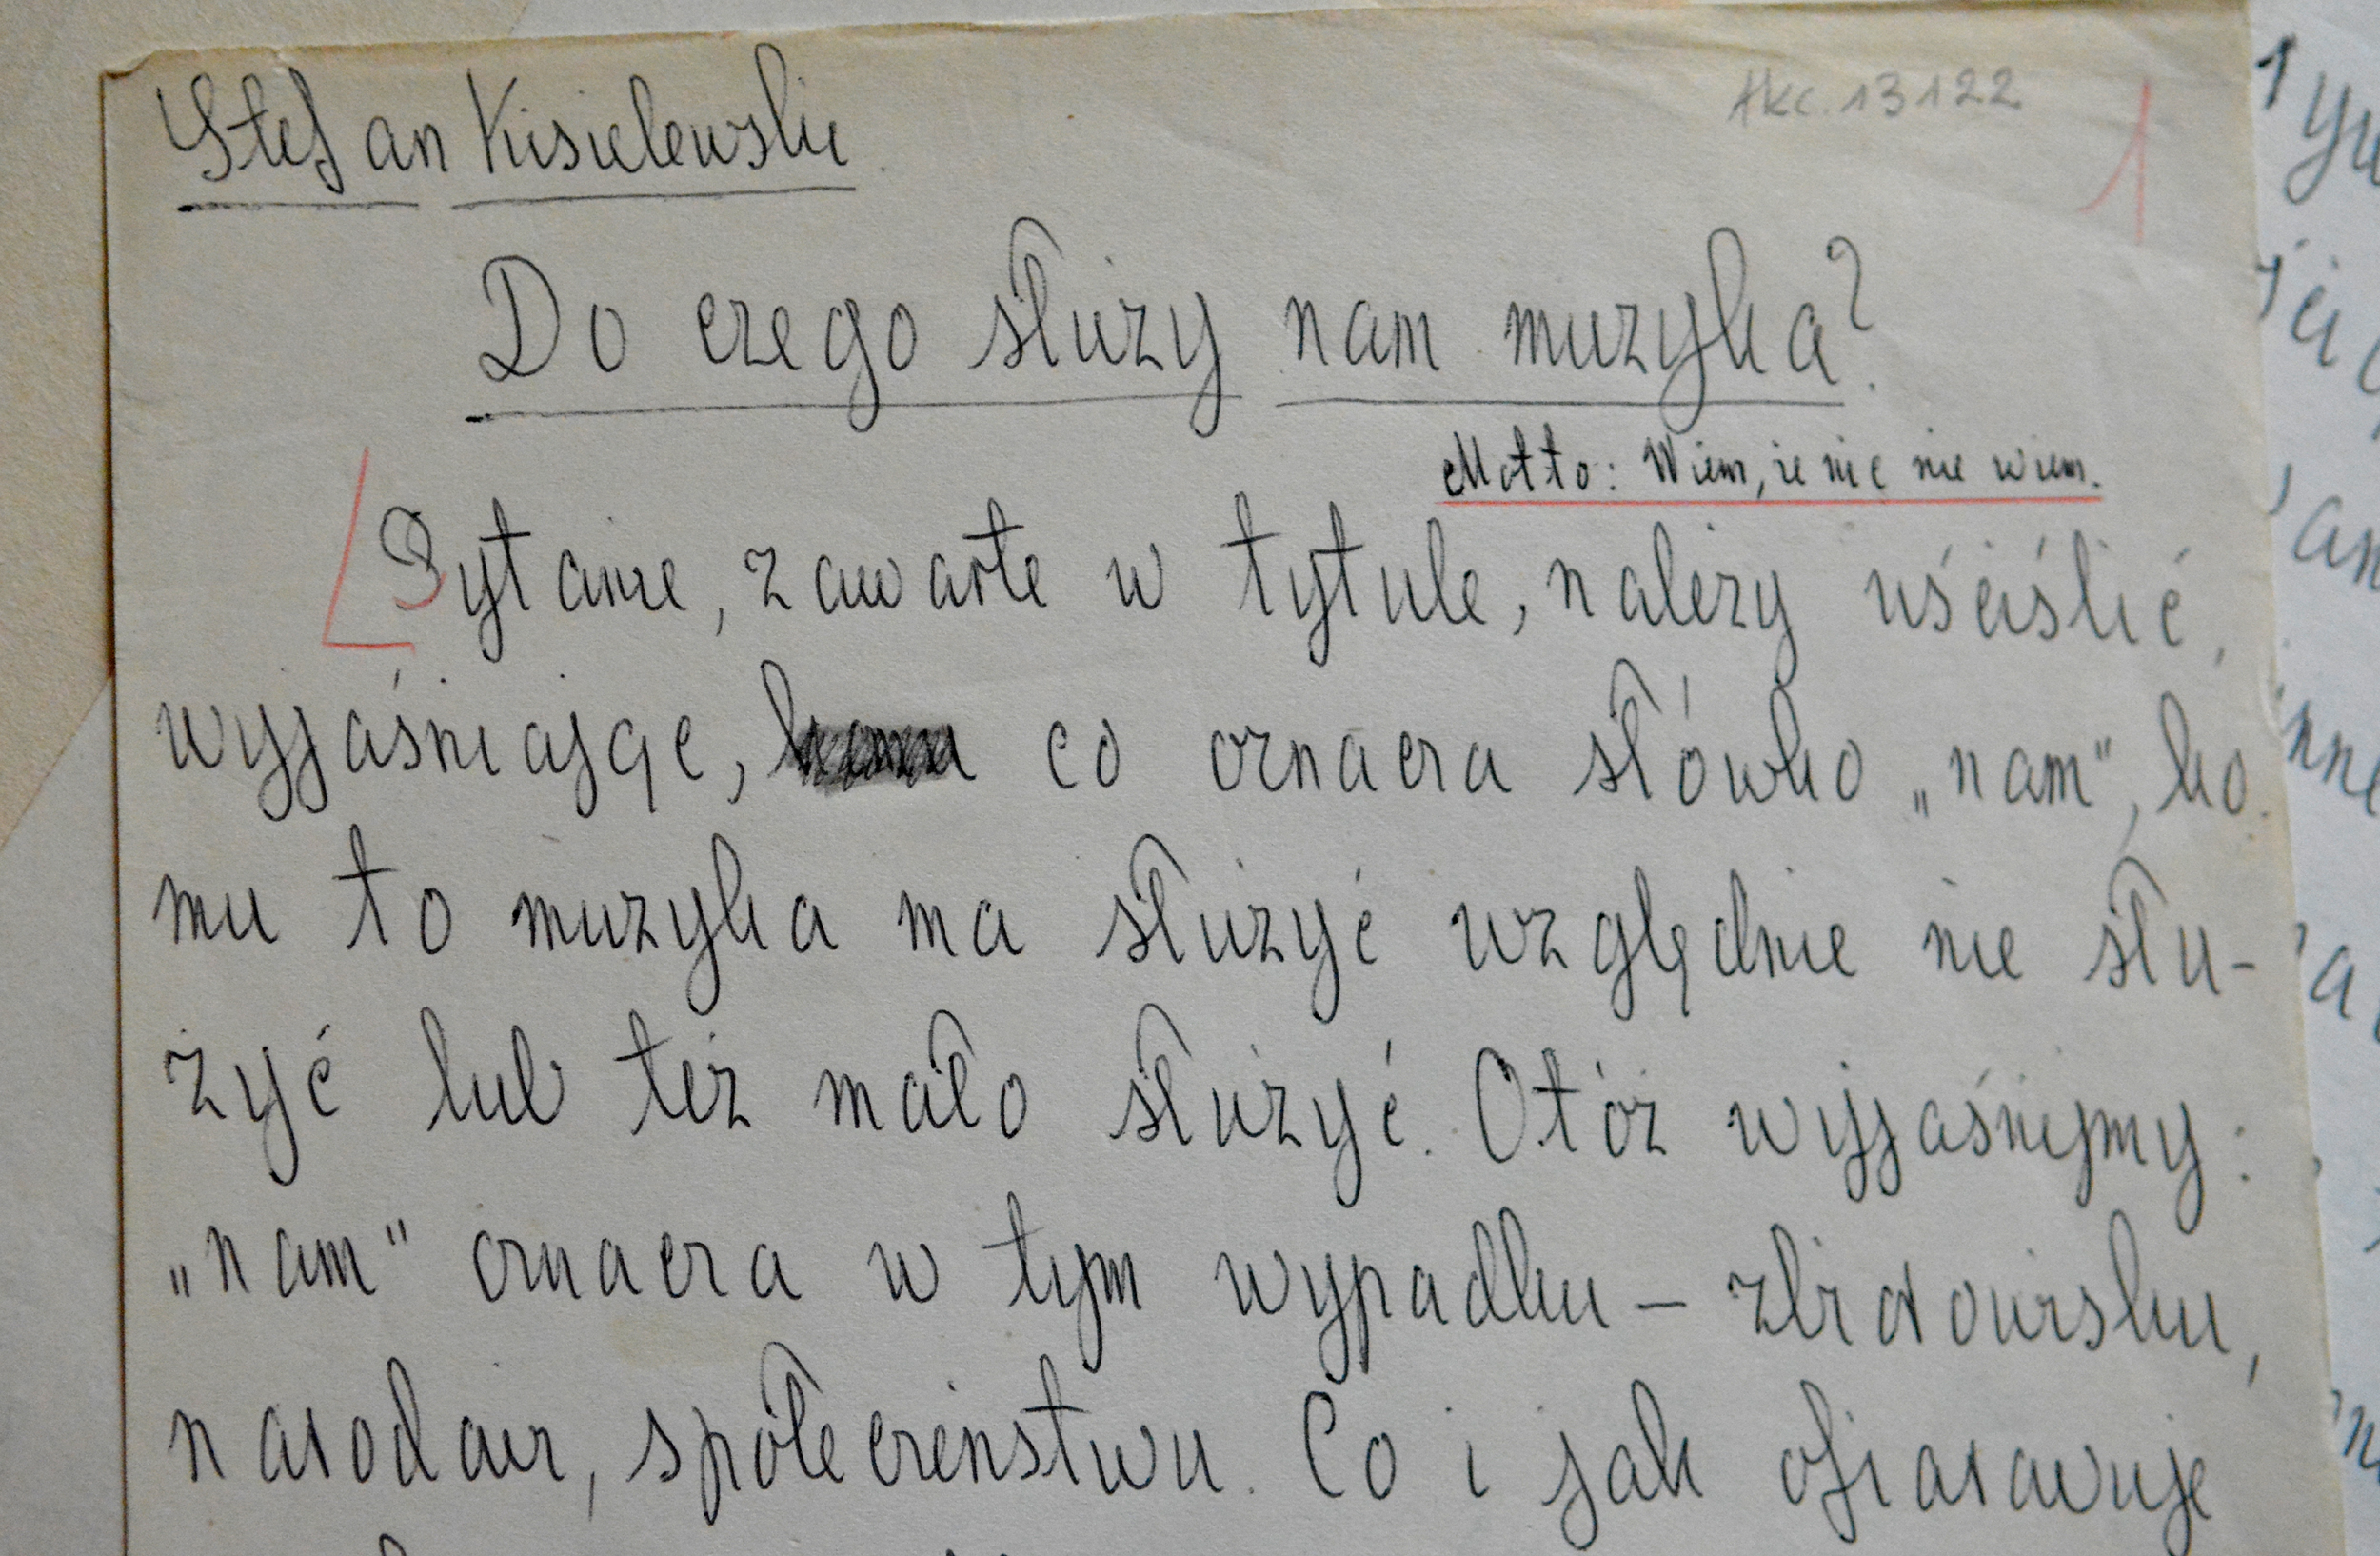 Stefan Kisielewski
Akc. 13122
1
Do czego służy nam muzyka?
Motto: Wiem, że nic nie wiem.
Pytanie, zawarte w tytule, należy uściślić,
wyjaśniając, co oznacza słówko „nam”, ko
mu to muzyka ma służyć względnie nie słu-
żyć lub też mało służyć. Otóż wyjaśnijmy:
„nam” oznacza w tym wypadku – zbiorowisku,
narodowi, społeczeństwu. Co i jak ofiarowuje